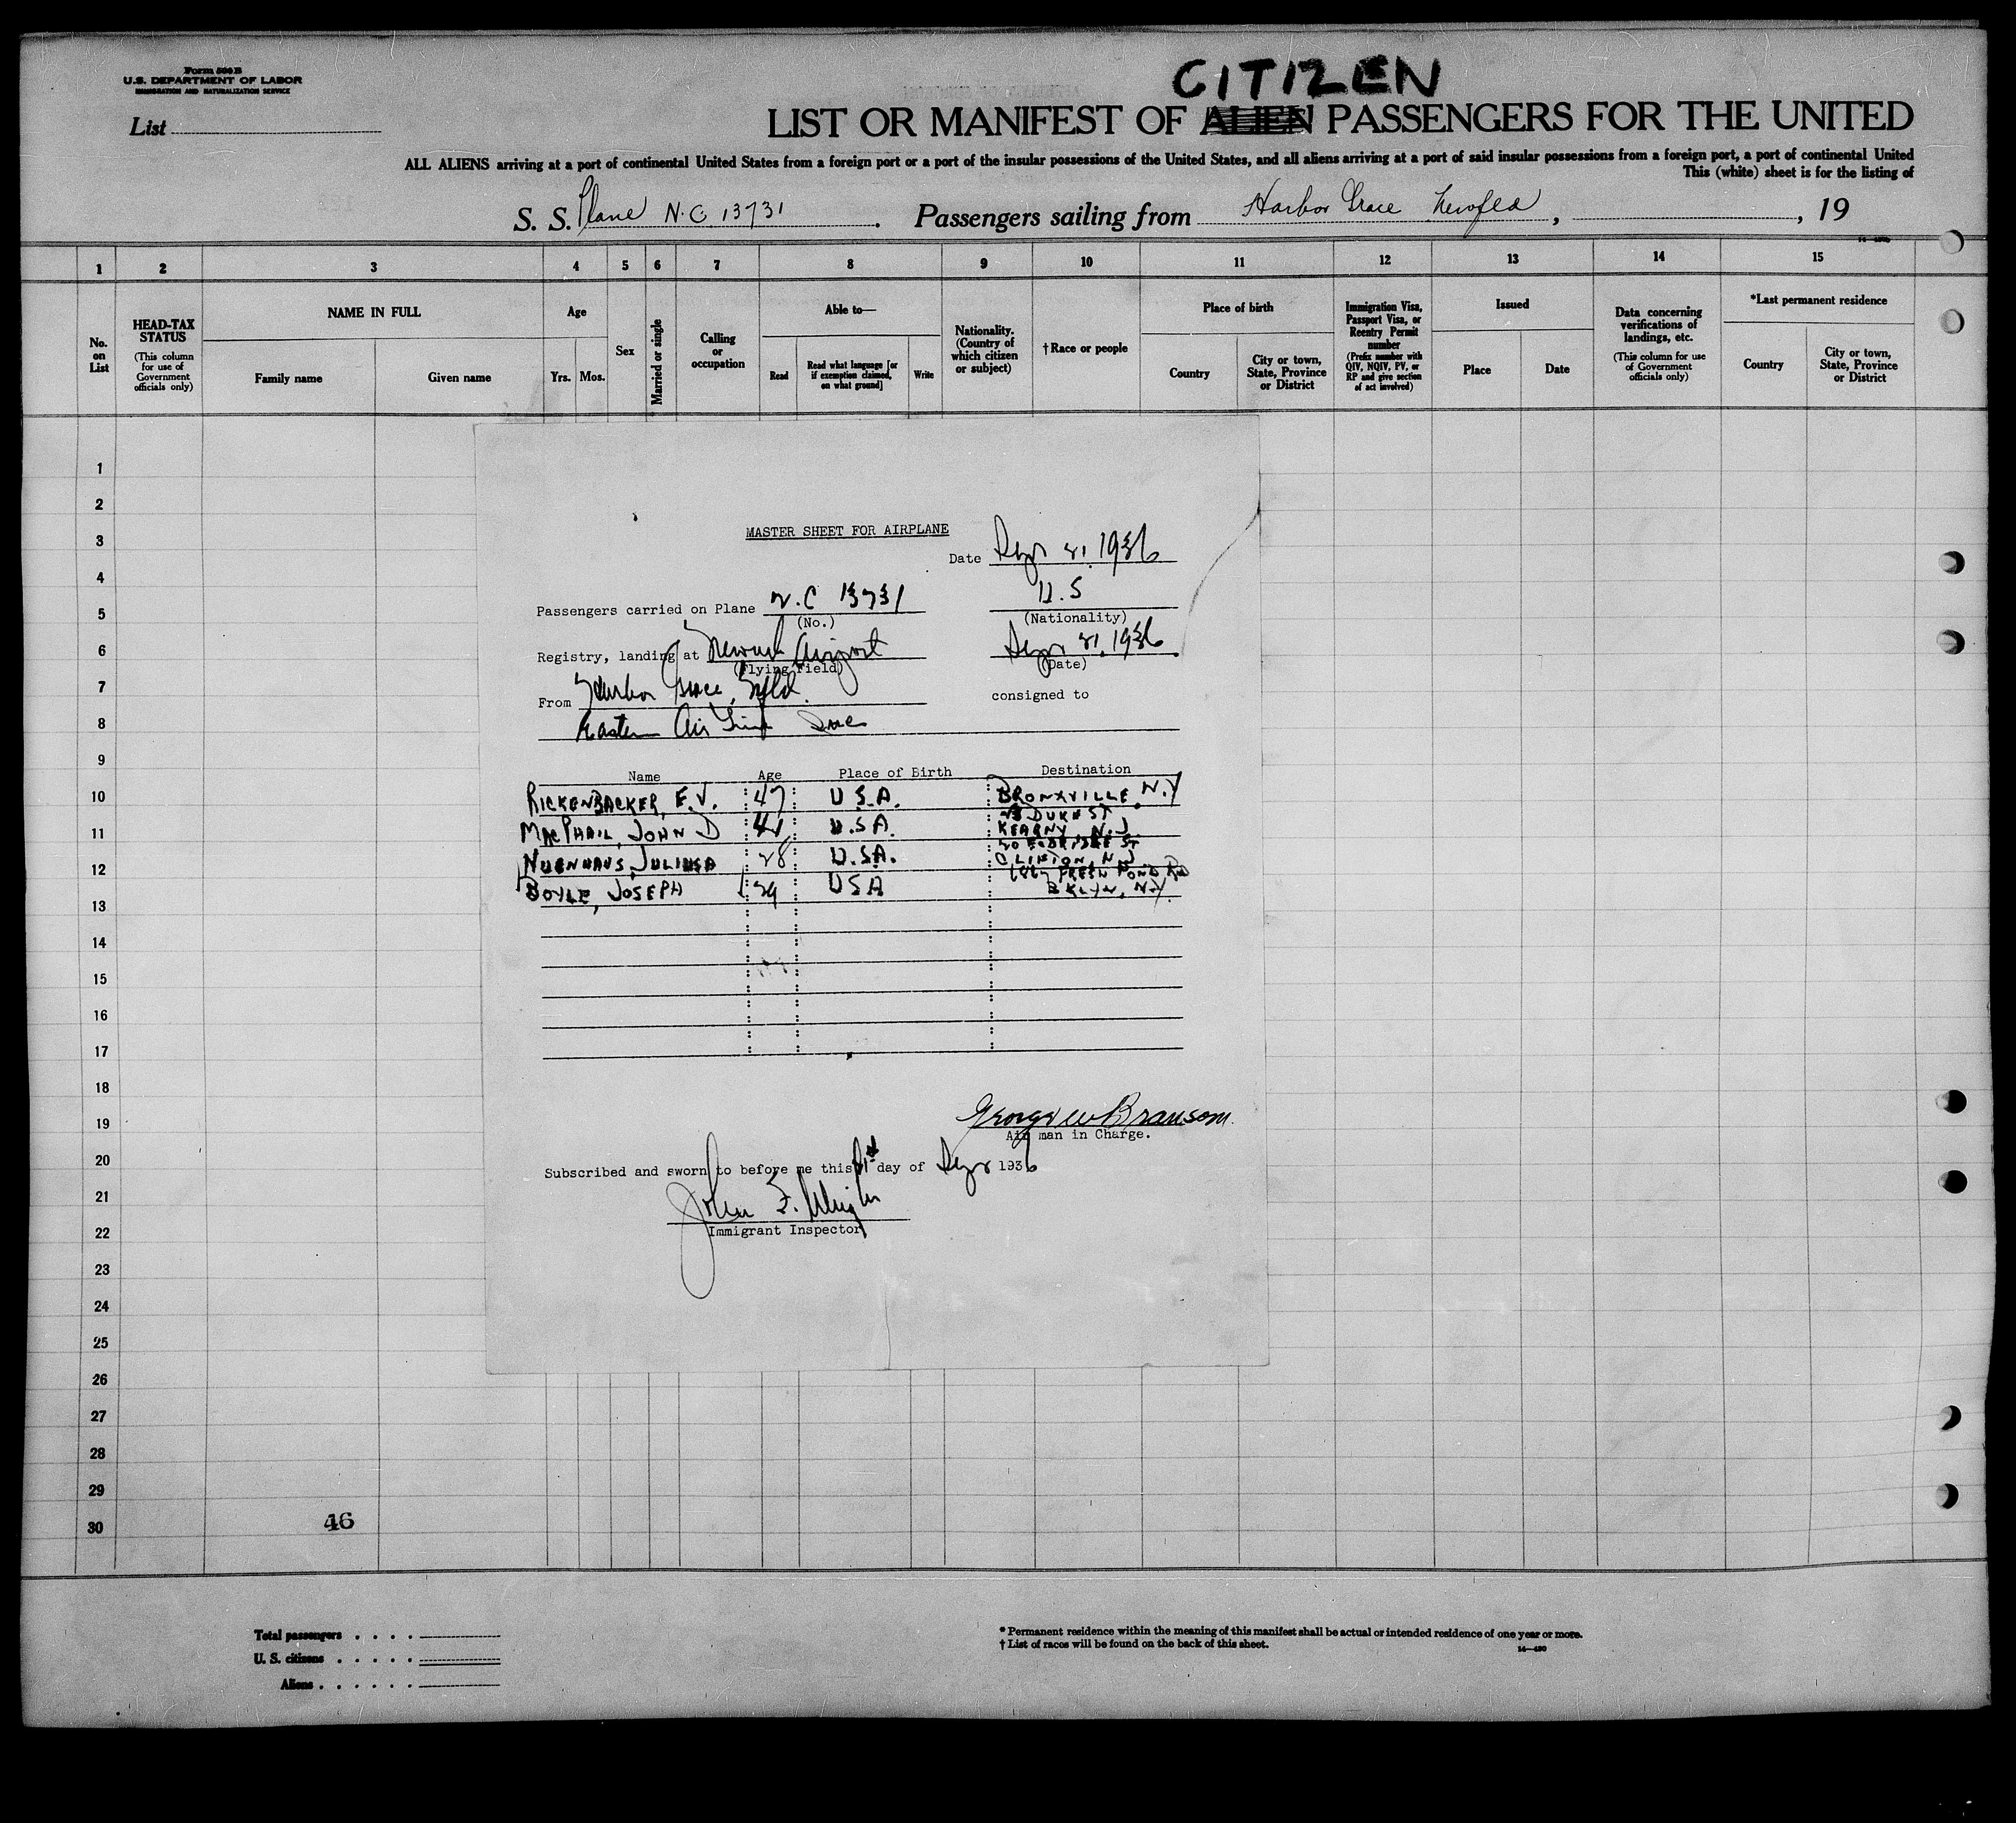 Form 500 B
U.S. DEPARTMENT OF LABOR
IMMIGRATION AND NATURALIZATION SERVICE
List
CITIZEN
LIST OR MANIFEST OF ALIEN PASSENGERS FOR THE UNITED
ALL ALIENS arriving at a port of continental United States from a foreign port or a port of the insular possessions of the United States, and all aliens arriving at a port of said insular possessions from a foreign port, a port of continental United
This (white) sheet is for the listing of
S. S. Plane N.C. 13731. Passengers sailing from Harbor Grace Newfld, , 19
1 2 3 4 5 6 7 8 9 10 11 12 13 14 15
No. on List
HEAD-TAX STATUS
(This column for use of Government officials only)
NAME IN FULL
Family name
Given name
Age
Yrs. Mos.
Sex
Married or single
Calling or occupation
Able to—
Read
Read what language [or if exemption claimed, on what ground]
Write
Nationality. (Country of which citizen or subject)
† Race or people
Place of birth
Country
City or town, State, Province or District
Immigration Visa, Passport Visa, or Reentry Permit number
(Prefix number with QIV, NQIV, PV, or RP and give section of act involved)
Issued
Place
Date
Data concerning verifications of landings, etc.
(This column for use of Government officials only)
*Last permanent residence
Country
City or town, State, Province or District
1
2
3
4
5
6
7
8
9
10
11
12
13
14
15
16
17
18
19
20
21
22
23
24
25
26
27
28
29
30
MASTER SHEET FOR AIRPLANE
Date Sept 21, 1936
Passengers carried on Plane N.C 13731 U.S
(No.) (Nationality)
Registry, landing at Newark Airport Sept 21, 1936
(Flying Field) (Date)
From Harbor Grace, Nfld. consigned to
Eastern Air Line Inc
Name Age Place of Birth Destination
RICKENBACKER, E.V. 47 U.S.A. BRONXVILLE, N.Y
MACPHAIL, JOHN D U.S.A. DUKE ST KEARNY N.J
JULIUS A 28 U.S.A. CLIFTON, N J
BOYLE, JOSEPH 39 USA FRESH POND RD BKLYN, N.Y.
George W Bransom
Air man in Charge.
Subscribed and sworn to before me this 21st day of Sept 1936
John F.
Immigrant Inspector
46
Total passengers
U. S. citizens
Aliens
* Permanent residence within the meaning of this manifest shall be actual or intended residence of one year or more.
† List of races will be found on the back of this sheet.
14—480